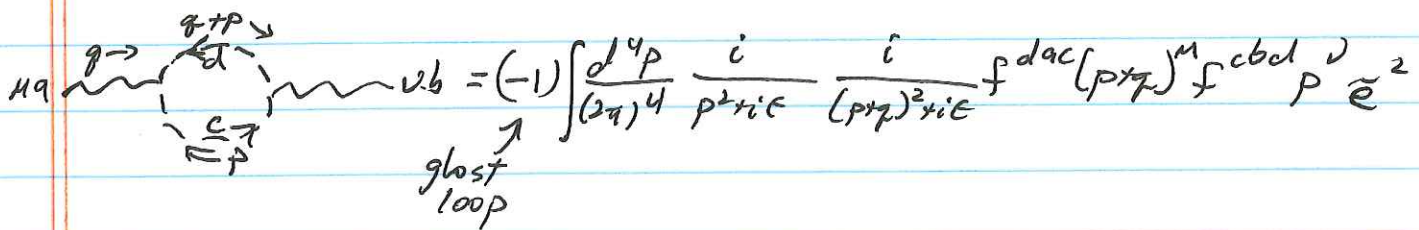 q+p →
q → d
μa ν.b = (-1) ∫ d⁴p/(2π)⁴ i/(p²+iε) i/((p+q)²+iε) f^{dac}(p+q)^μ f^{cbd} p^ν ẽ²
c
p
ghost
loop